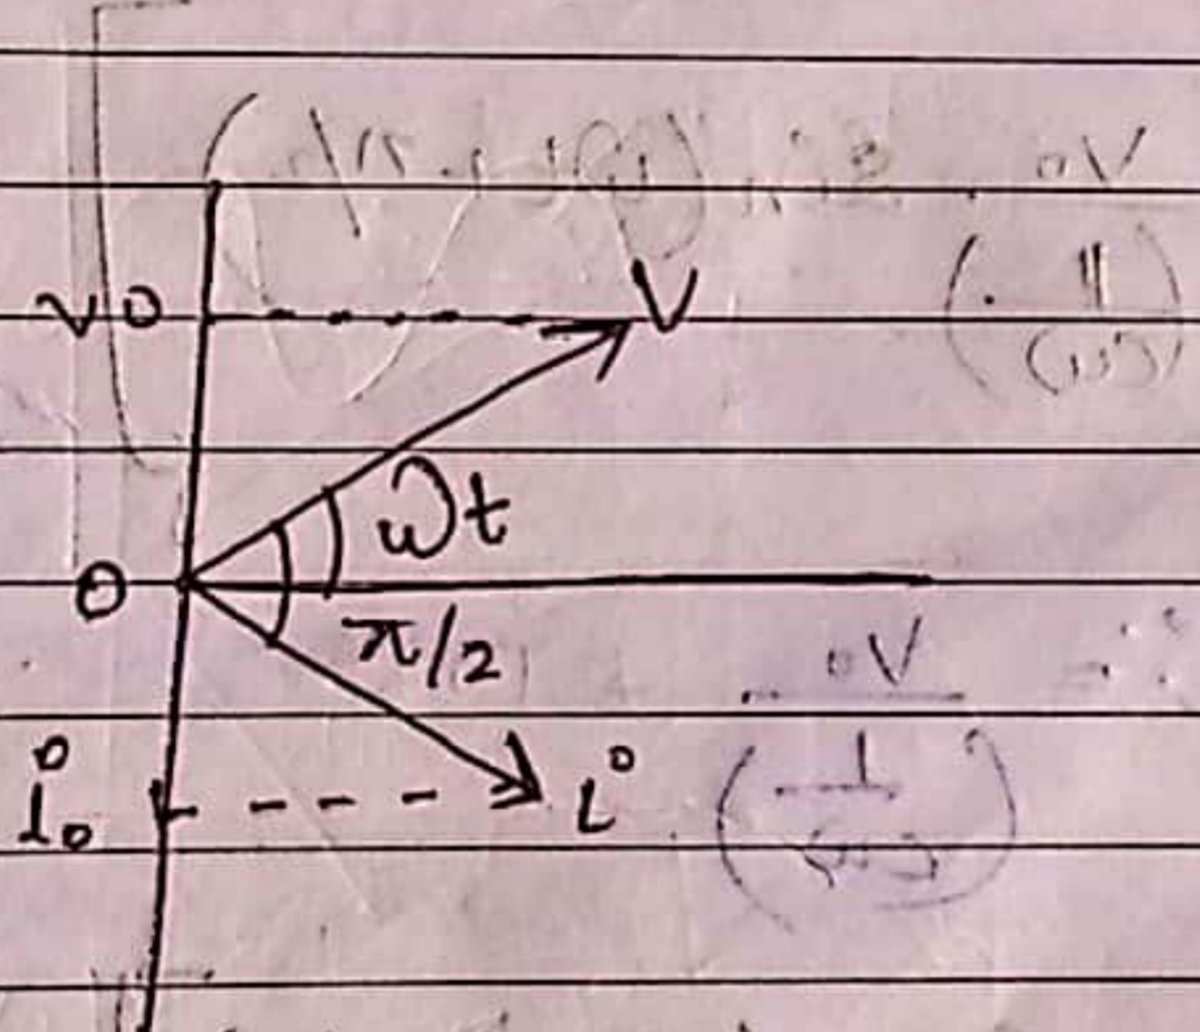 v0 V
ωt
0
π/2
i₀ i